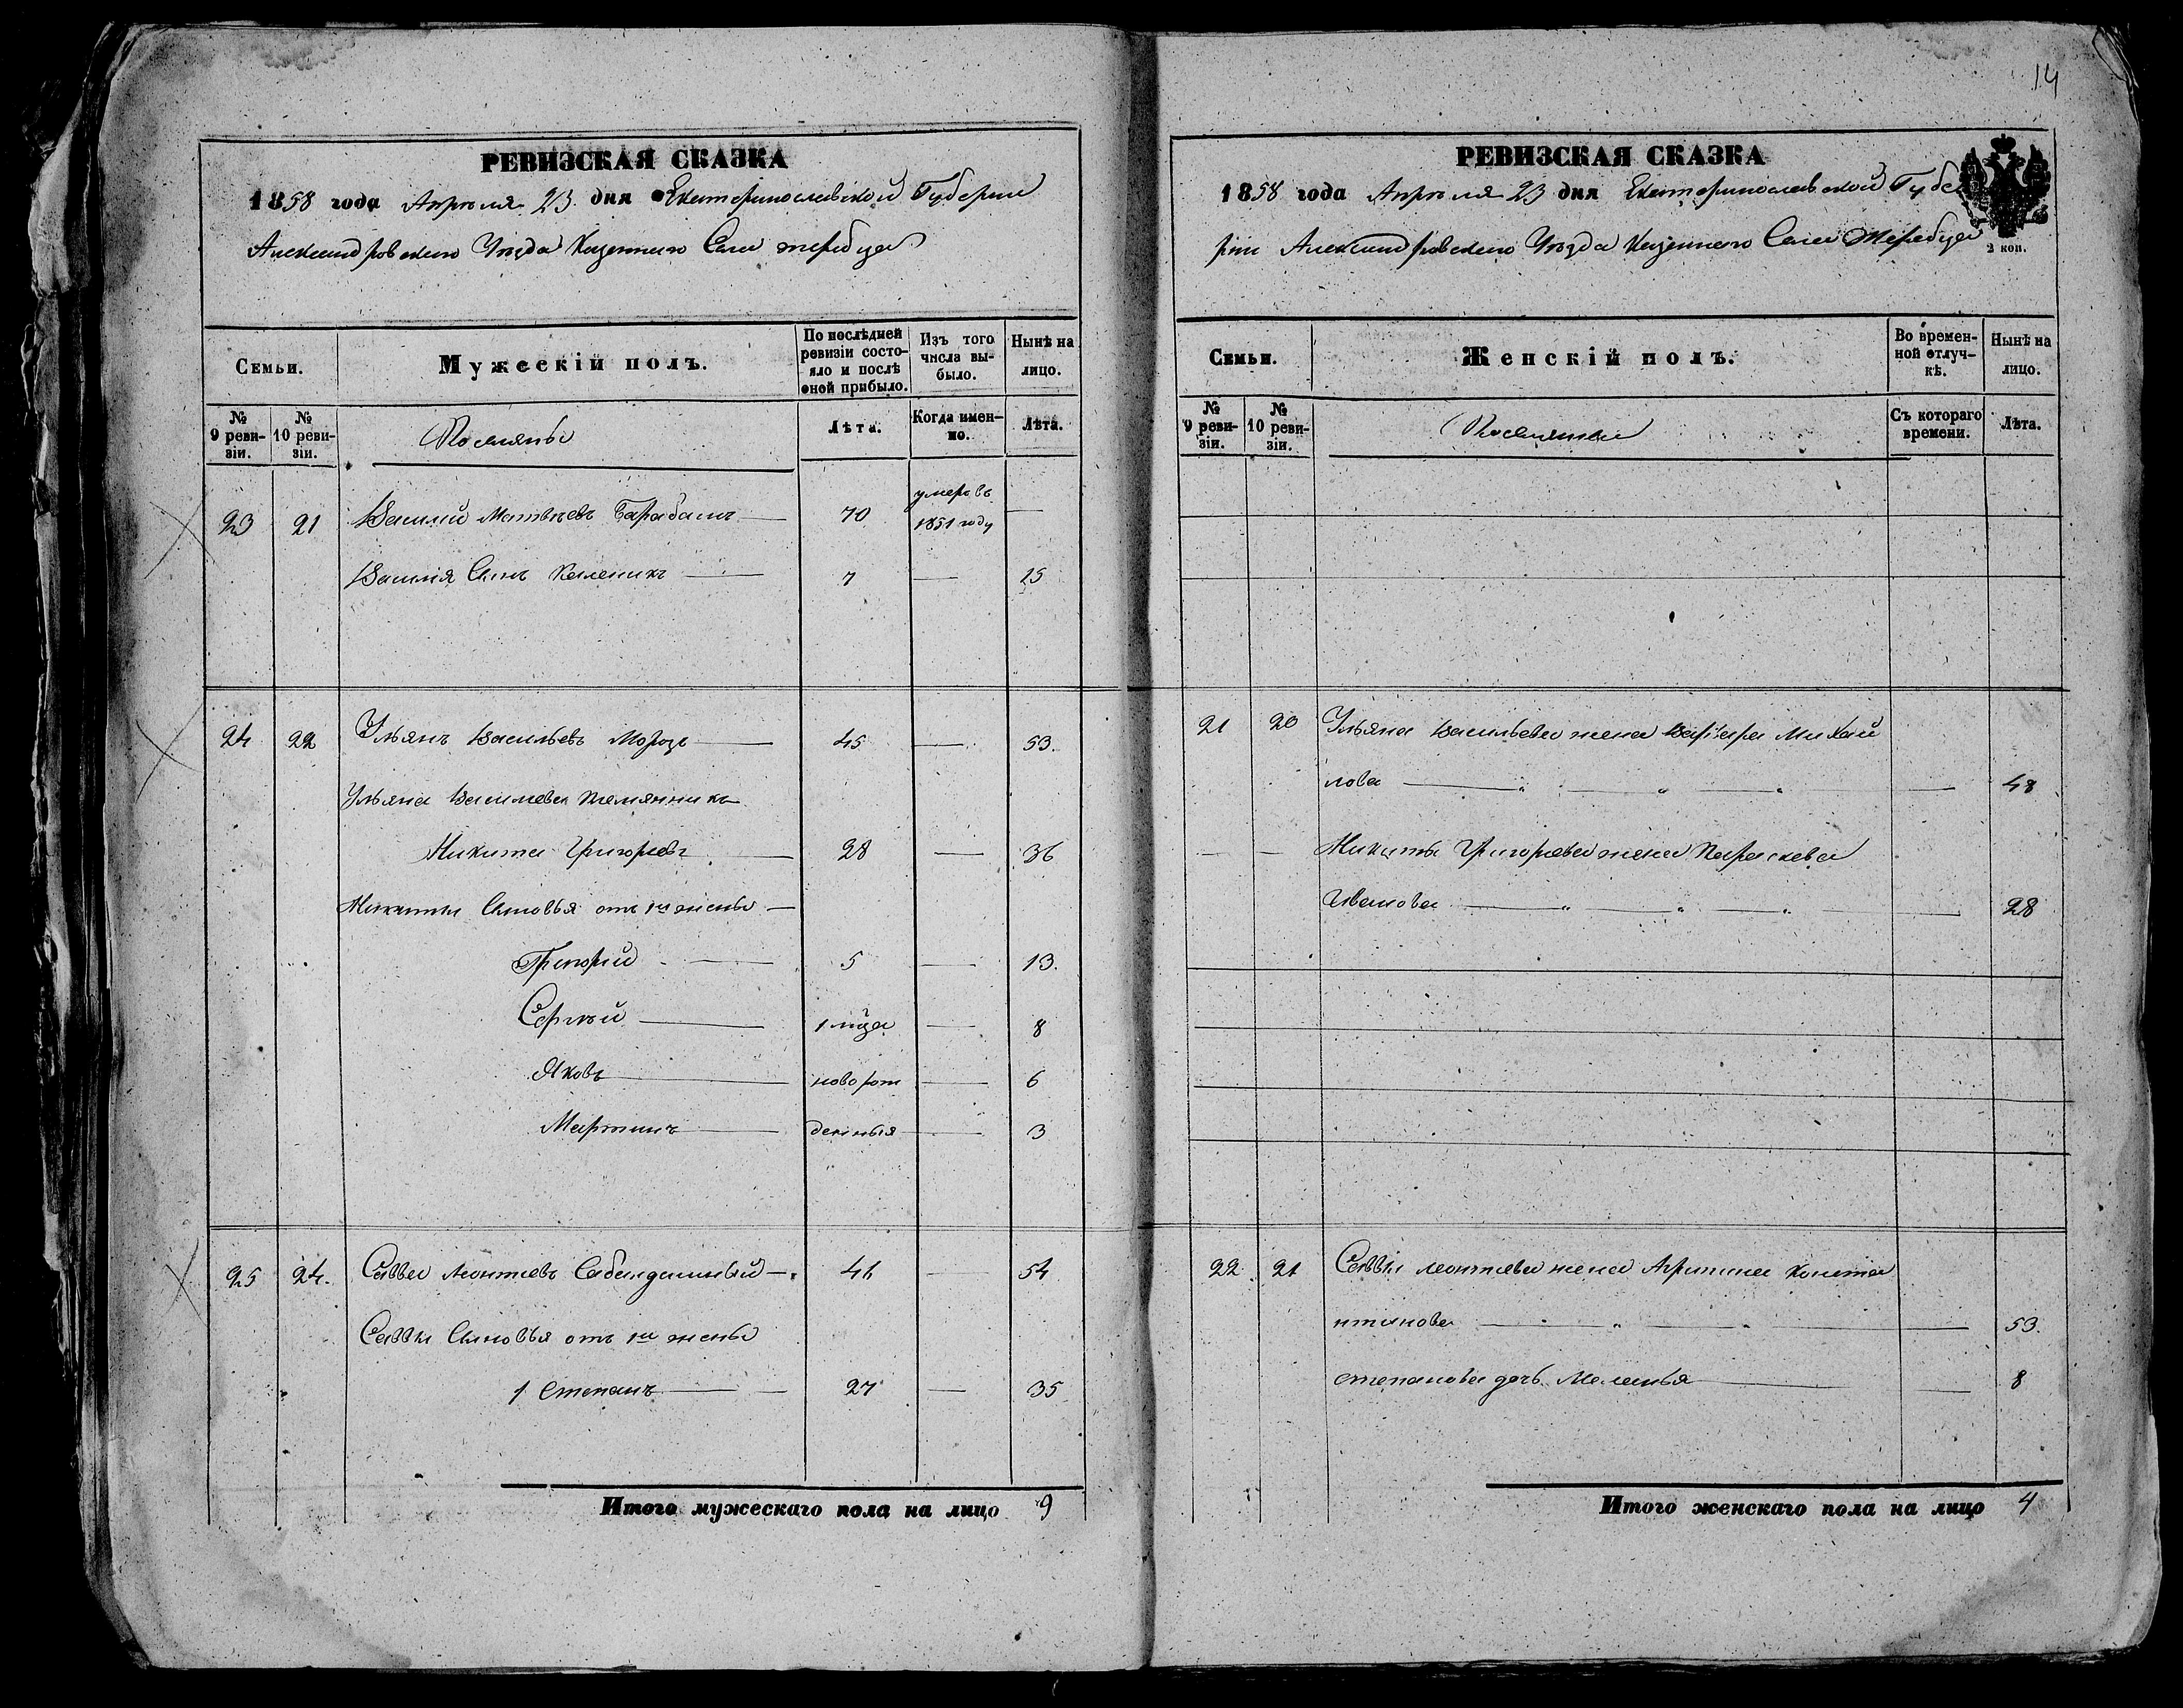 14
РЕВИЗСКАЯ СКАЗКА
1858 года Апреля 23 дня Екатеринославской Губернии
Александровского Уезда Казенного Села Жеребца
Семьи.
Мужескій полъ.
По послѣдней ревизіи состояло и послѣ оной прибыло.
Изъ того числа выбыло.
Нынѣ на лицо.
№ 9 ревизіи.
№ 10 ревизіи.
Поселяны
Лѣта.
Когда именно.
Лѣта.
23 21 Василий Матвѣевъ Барабашъ 70 умеръ въ 1851 году —
Василія Сынъ Каленикъ 7 — 15
24 22 Ульянъ Васильевъ Морозъ 45 — 53.
Ульяна Васильева племянникъ
Никита Григорьевъ 28 — 36
Никиты Сыновья отъ 1й жены
Григорій 5 — 13.
Сергѣй 1 мѣца — 8
Яковъ новорож — 6
Мартинъ денныя — 3
25 24. Савва Леонтьевъ 46 — 54
Саввы Сыновья отъ 1й жены
1 Степанъ 27 — 35
Итого мужескаго пола на лицо 9
РЕВИЗСКАЯ СКАЗКА
1858 года Апреля 23 дня Екатеринославской Губе
рніи Александровского Уезда Казенного Села Жеребца
2 коп.
Семьи.
Женскій полъ.
Во временной отлучкѣ.
Нынѣ на лицо.
№ 9 ревизіи.
№ 10 ревизіи.
Поселянки
Съ котораго времени.
Лѣта.
21 20 Ульяна Васильева жена Варвара Михай
лова — 48
— — Никиты Григорьева жена Параскева
Иванова — 28
22 21 Саввы Леонтьева жена Агрипина Конста
нтинова — 53.
Степанова дочь Маланья — 8
Итого женскаго пола на лицо 4